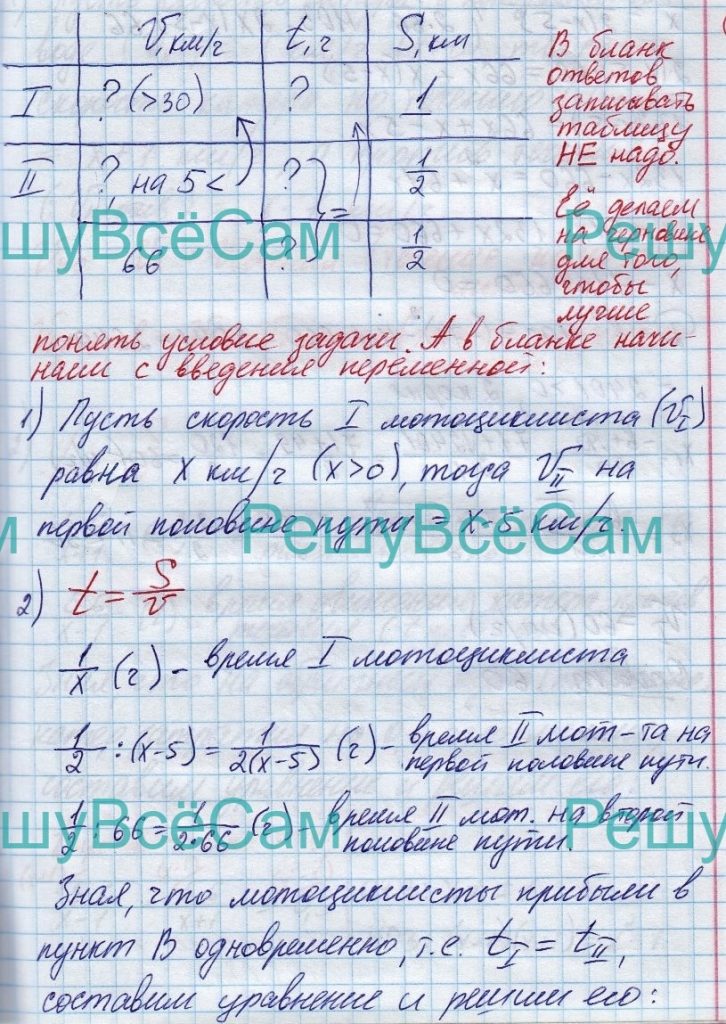 V, км/ч t, ч S, км
I ? (>30) ? 1
II ?, на 5 < ? 1/2
66 ? = 1/2
В бланк
ответов
записывать
таблицу
НЕ надо.
Её делаем
на черновике
для того,
чтобы
лучше
понять условие задачи. А в бланке начи-
наем с введения переменной:
1) Пусть скорость I мотоциклиста (V_I)
равна x км/ч (x>0), тогда V_II на
первой половине пути = x-5 км/ч.
2) t = S/V
1/x (ч) - время I мотоциклиста
1/2 : (x-5) = 1/2(x-5) (ч) - время II мот-та на
первой половине пути.
1/2 : 66 = 1/2·66 (ч) - время II мот. на второй
половине пути.
Зная, что мотоциклисты прибыли в
пункт В одновременно, т.е. t_I = t_II,
составим уравнение и решим его:
шуВсёСам Решу
м РешуВсёСам
шуВсёСам Решу